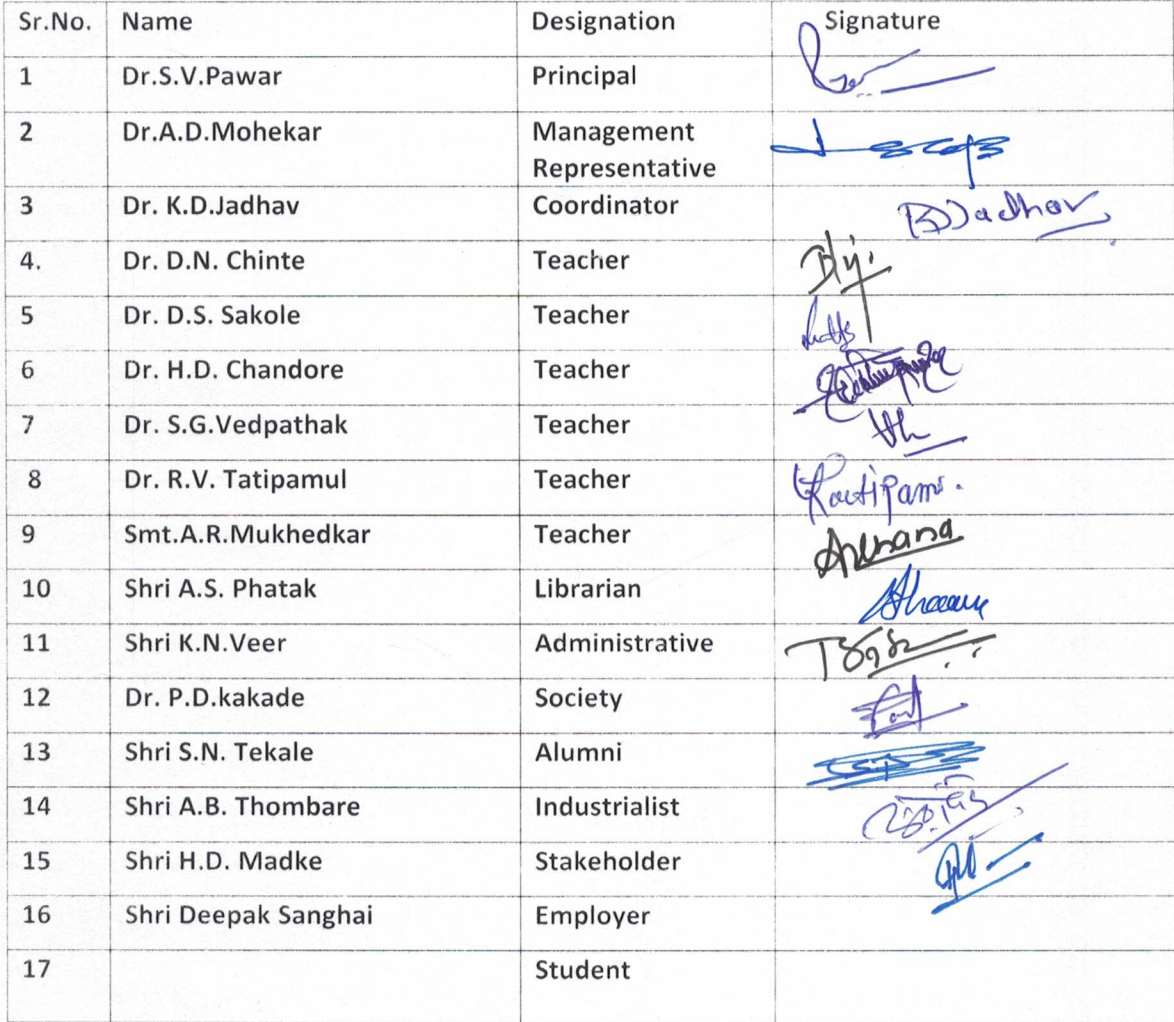 Sr.No. Name Designation Signature
1 Dr.S.V.Pawar Principal
2 Dr.A.D.Mohekar Management
Representative
3 Dr. K.D.Jadhav Coordinator
4. Dr. D.N. Chinte Teacher
5 Dr. D.S. Sakole Teacher
6 Dr. H.D. Chandore Teacher
7 Dr. S.G.Vedpathak Teacher
8 Dr. R.V. Tatipamul Teacher
9 Smt.A.R.Mukhedkar Teacher
10 Shri A.S. Phatak Librarian
11 Shri K.N.Veer Administrative
12 Dr. P.D.kakade Society
13 Shri S.N. Tekale Alumni
14 Shri A.B. Thombare Industrialist
15 Shri H.D. Madke Stakeholder
16 Shri Deepak Sanghai Employer
17 Student